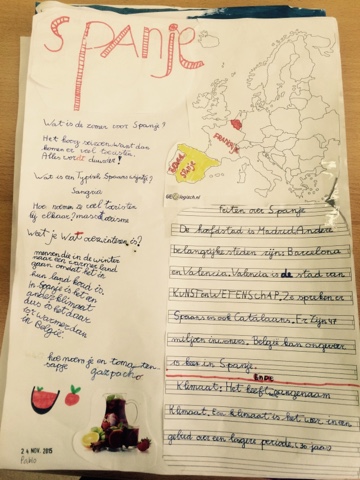 SPANJE
Wat is de zomer voor Spanje?
Het hoog seizoen want dan
komen er veel toeristen
Alles wordt duurder!
Wat is een Typisch Spaans wijntje?
Sangria
Hoe noemen ze veel toeristen
bij elkaar? massatoerisme
Weet je wat overwinteren is?
mensen die in de winter
naar een warmer land
gaan omdat het in
hun land koud is.
In Spanje is het een
ander klimaat
dus is het daar
warmer dan
in België.
hoe noem je een tomatensapje
gazpacho
24 NOV. 2015
Pablo
FRANKRIJK
SPANJE
Feiten over Spanje
De hoofdstad is Madrid Andere
belangrijke steden zijn: Barcelona
en Valencia. Valencia is de stad van
KUNST en WETENSCHAP. Ze spreken er
Spaans en ook Catalaans. Er zijn 47
miljoen inwoners. België kan ongeveer
keer in Spanje.
Klimaat: Het heeft aangenaam
Klimaat. Een klimaat is het weer in een
gebied over een langere periode. (30 jaar)